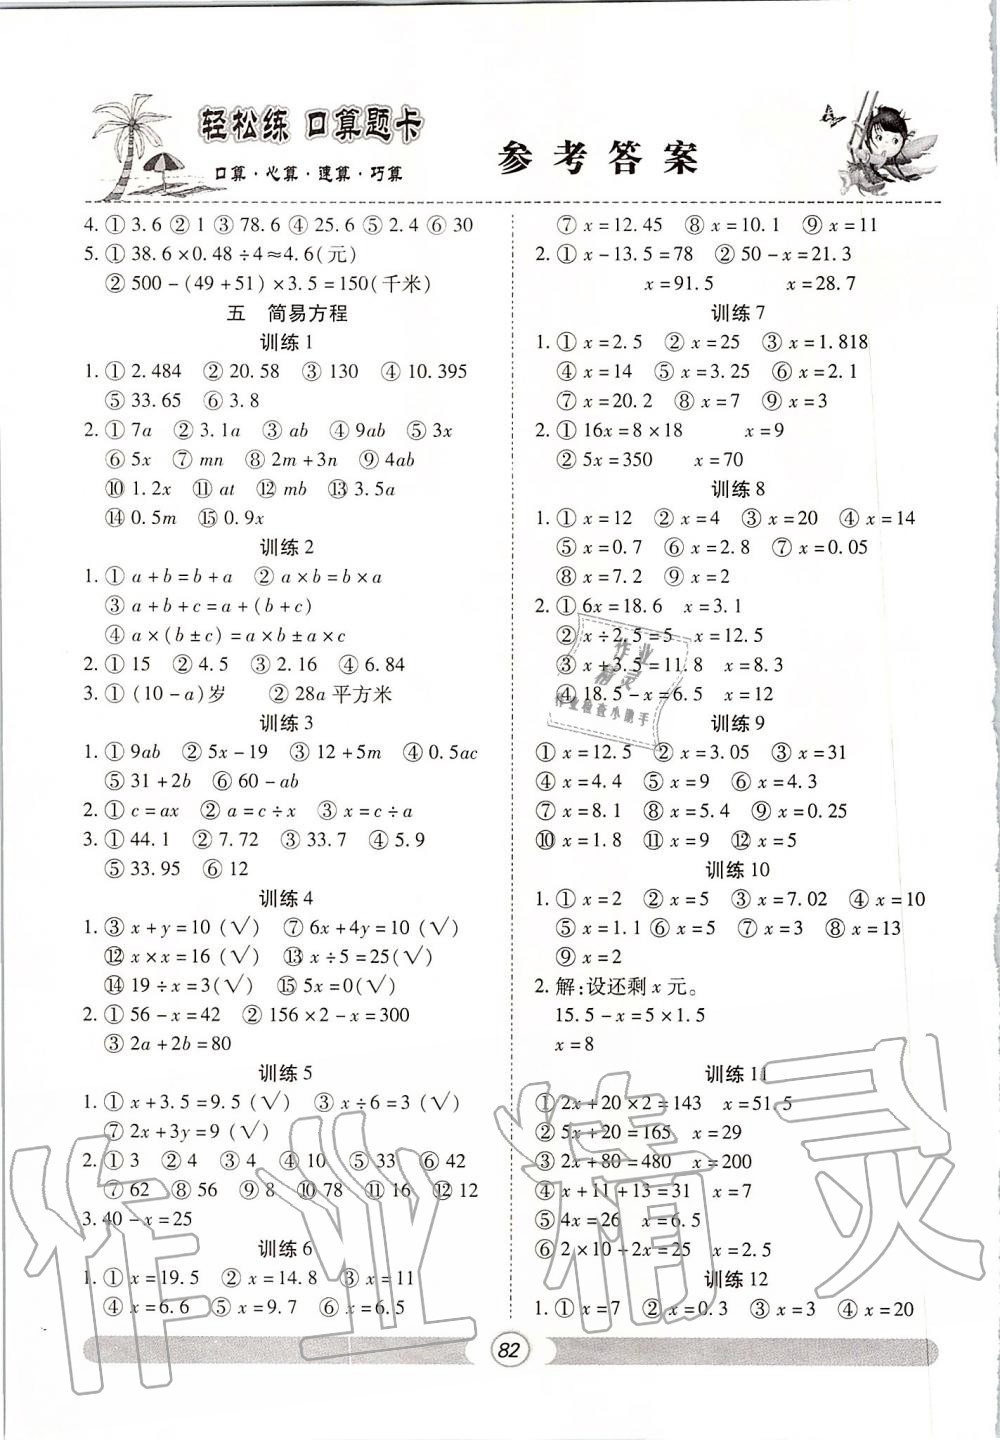 轻松练 口算题卡
口算·心算·速算·巧算
参考答案
4. ① 3.6 ② 1 ③ 78.6 ④ 25.6 ⑤ 2.4 ⑥ 30
5. ① 38.6×0.48÷4≈4.6(元)
② 500-(49+51)×3.5=150(千米)
五 简易方程
训练1
1. ① 2.484 ② 20.58 ③ 130 ④ 10.395
⑤ 33.65 ⑥ 3.8
2. ① 7a ② 3.1a ③ ab ④ 9ab ⑤ 3x
⑥ 5x ⑦ mn ⑧ 2m+3n ⑨ 4ab
⑩ 1.2x ⑪ at ⑫ mb ⑬ 3.5a
⑭ 0.5m ⑮ 0.9x
训练2
1. ① a+b=b+a ② a×b=b×a
③ a+b+c=a+(b+c)
④ a×(b±c)=a×b±a×c
2. ① 15 ② 4.5 ③ 2.16 ④ 6.84
3. ① (10-a)岁 ② 28a平方米
训练3
1. ① 9ab ② 5x-19 ③ 12+5m ④ 0.5ac
⑤ 31+2b ⑥ 60-ab
2. ① c=ax ② a=c÷x ③ x=c÷a
3. ① 44.1 ② 7.72 ③ 33.7 ④ 5.9
⑤ 33.95 ⑥ 12
训练4
1. ③ x+y=10(√) ⑦ 6x+4y=10(√)
⑫ x×x=16(√) ⑬ x÷5=25(√)
⑭ 19÷x=3(√) ⑮ 5x=0(√)
2. ① 56-x=42 ② 156×2-x=300
③ 2a+2b=80
训练5
1. ① x+3.5=9.5(√) ③ x÷6=3(√)
⑦ 2x+3y=9(√)
2. ① 3 ② 4 ③ 4 ④ 10 ⑤ 33 ⑥ 42
⑦ 62 ⑧ 56 ⑨ 8 ⑩ 78 ⑪ 16 ⑫ 12
3. 40-x=25
训练6
1. ① x=19.5 ② x=14.8 ③ x=11
④ x=6.6 ⑤ x=9.7 ⑥ x=6.5
⑦ x=12.45 ⑧ x=10.1 ⑨ x=11
2. ① x-13.5=78 ② 50-x=21.3
x=91.5 x=28.7
训练7
1. ① x=2.5 ② x=25 ③ x=1.818
④ x=14 ⑤ x=3.25 ⑥ x=2.1
⑦ x=20.2 ⑧ x=7 ⑨ x=3
2. ① 16x=8×18 x=9
② 5x=350 x=70
训练8
1. ① x=12 ② x=4 ③ x=20 ④ x=14
⑤ x=0.7 ⑥ x=2.8 ⑦ x=0.05
⑧ x=7.2 ⑨ x=2
2. ① 6x=18.6 x=3.1
② x÷2.5=5 x=12.5
③ x+3.5=11.8 x=8.3
④ 18.5-x=6.5 x=12
训练9
① x=12.5 ② x=3.05 ③ x=31
④ x=4.4 ⑤ x=9 ⑥ x=4.3
⑦ x=8.1 ⑧ x=5.4 ⑨ x=0.25
⑩ x=1.8 ⑪ x=9 ⑫ x=5
训练10
1. ① x=2 ② x=5 ③ x=7.02 ④ x=10
⑤ x=1.1 ⑥ x=5 ⑦ x=3 ⑧ x=13
⑨ x=2
2. 解:设还剩x元。
15.5-x=5×1.5
x=8
训练11
① 2x+20×2=143 x=51.5
② 5x+20=165 x=29
③ 2x+80=480 x=200
④ x+11+13=31 x=7
⑤ 4x=26 x=6.5
⑥ 2×10+2x=25 x=2.5
训练12
1. ① x=7 ② x=0.3 ③ x=3 ④ x=20
82
作业精灵
作业检查小助手
作业精灵